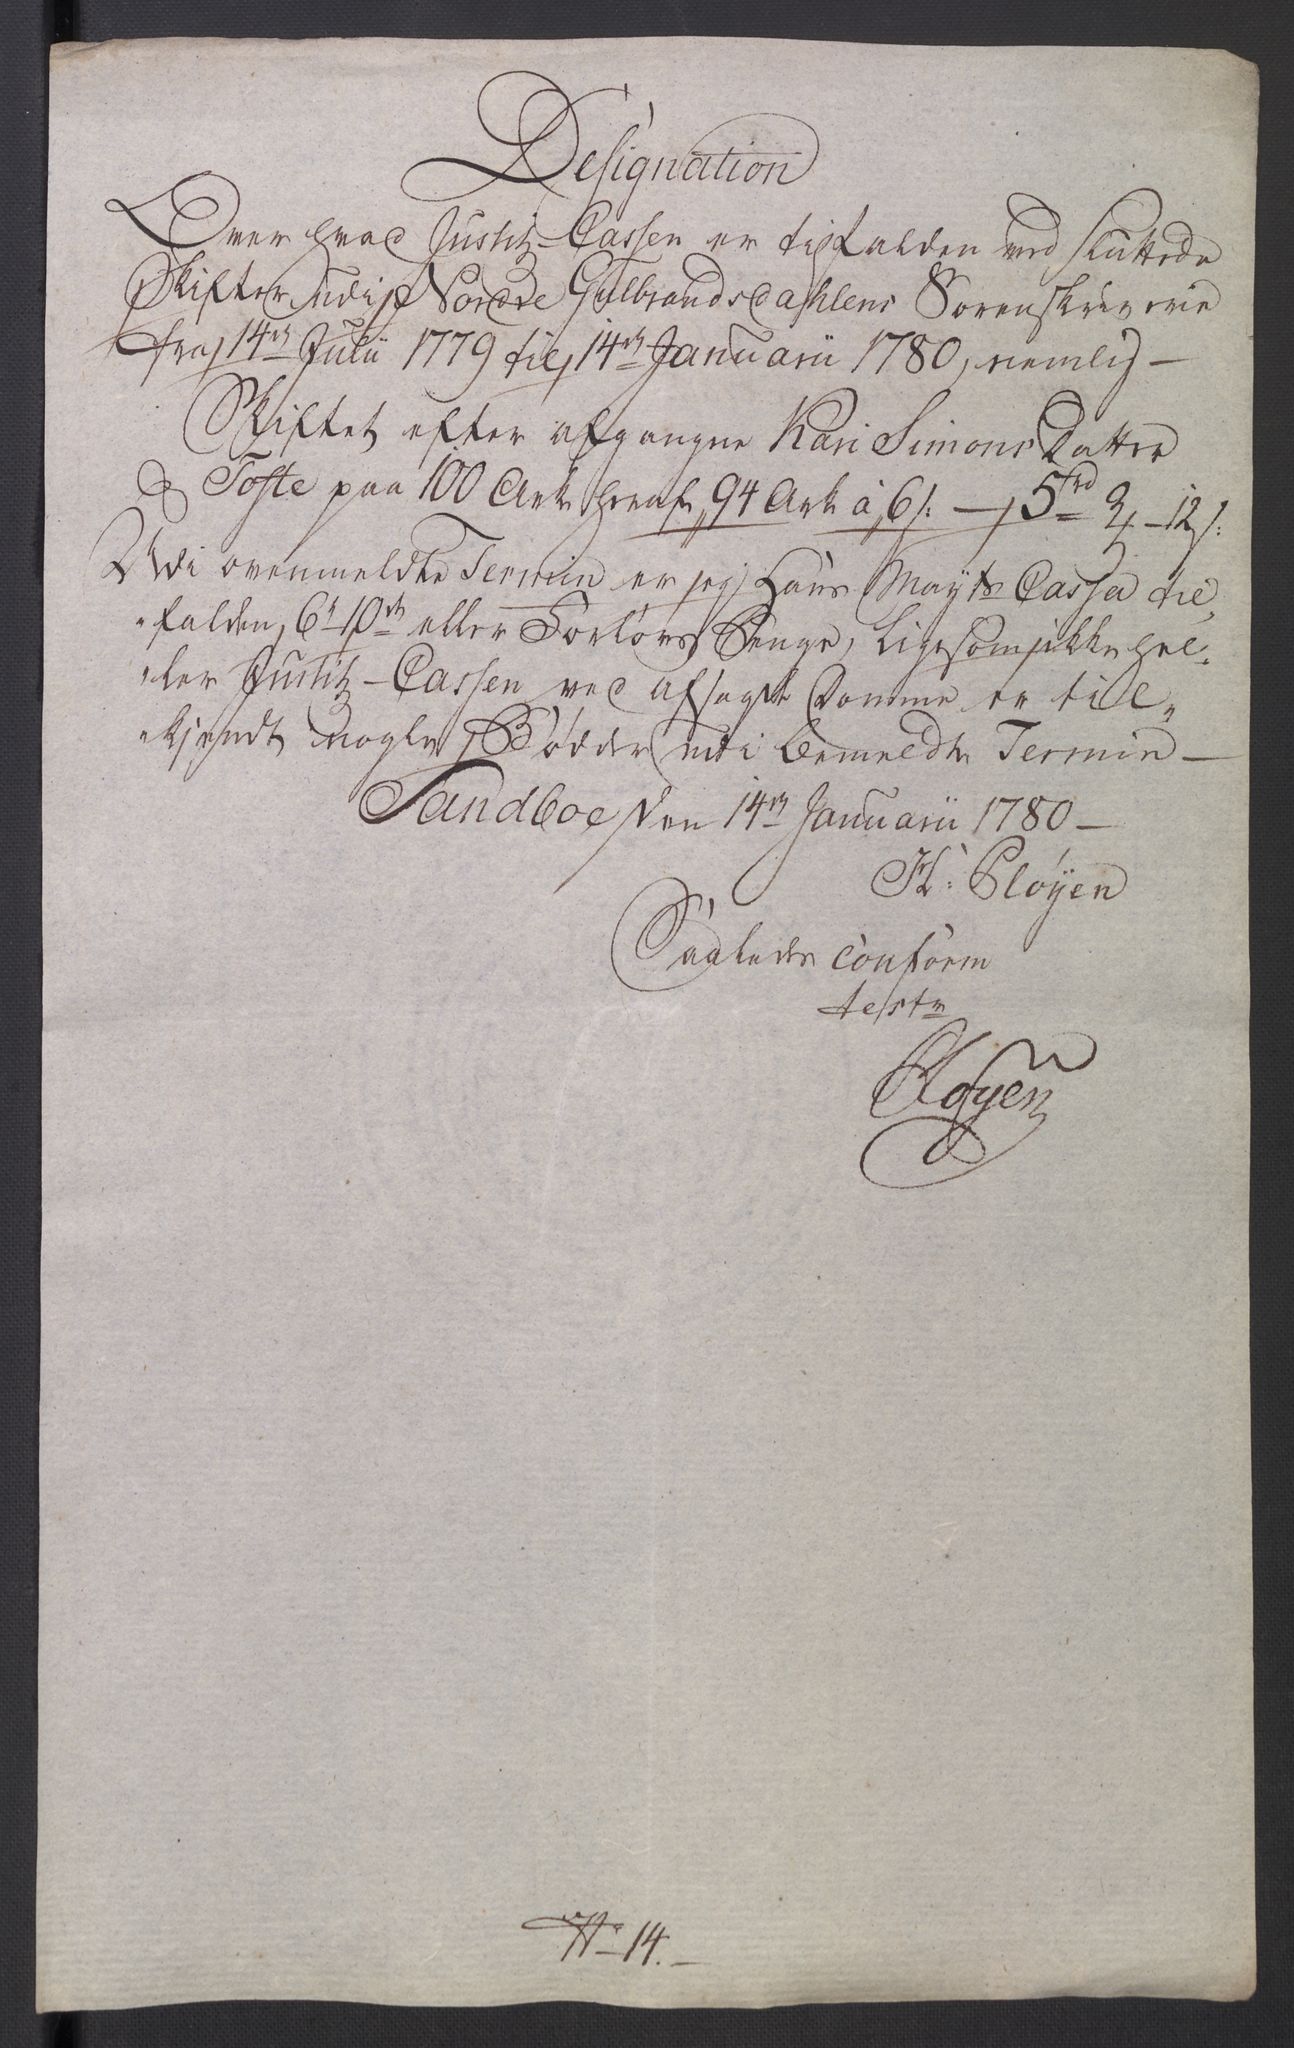 Designation
Over hvad Justitz-Cassen er tilfalden ved sluttede
Skifter udi Nordre Gulbrandsdahlens Sorenskriverie
fra 14de Julii 1779 til 14de Januarii 1780, nemlig —
Skiftet efter afgangne Kari Simons Datter
Tofte paa 100 Ark hvoraf 94 Ark á 6 s: — 5 rd 2 — 12 s:
Udi ovenmeldte Termin er ej Hans Mayts Cassa til„
„falden 6te 10de eller Forlovs Penge, ligesom ikke hel„
„ler Justitz-Cassen ved afsagte Domme er til„
„kjendt nogle Bøder udi bemeldte Termin —
Sandboe den 14de Januarii 1780 —
H: Pløyen
Saaledes conform
tester
Pløyen
No 14. —